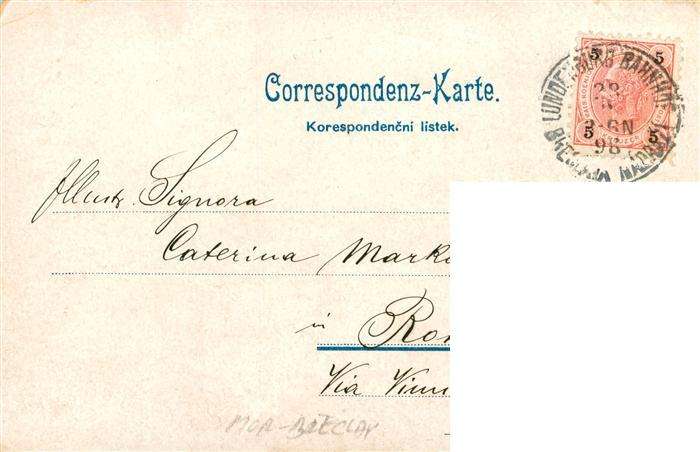 Correspondenz-Karte.
Korespondenční lístek.
5 5
5 5
LUNDENBURG BAHNHOF
98
BŘECLAV NÁDRAŽÍ
Illustr. Signora
Caterina Mark
in Ro
Via
MOR-BŘECLAV